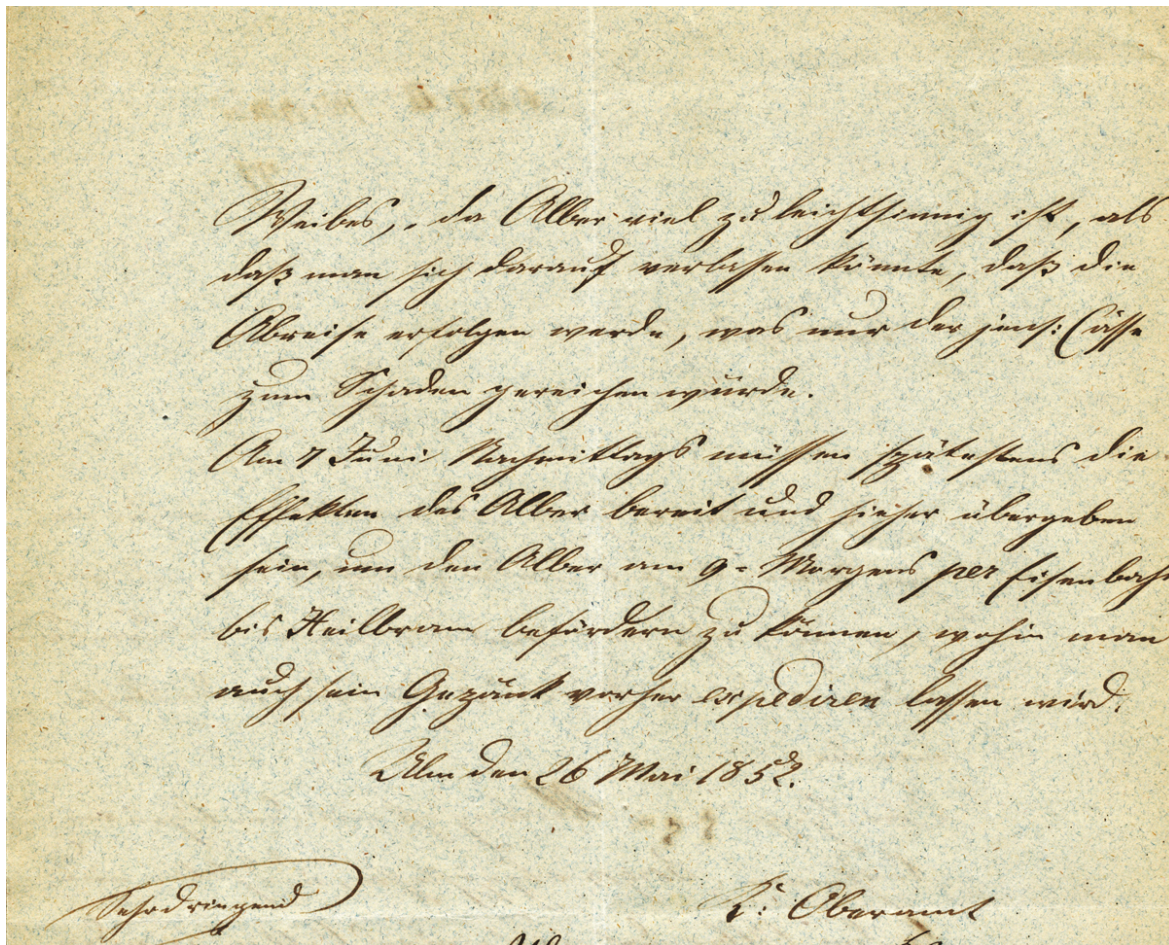 Weibes, da Alber viel zu leichtsinnig ist, als
daß man sich darauf verlassen könnte, daß die
Abreise erfolgen werde, was nur der jens: Casse
zum Schaden gereichen würde.
Am 7 Juni Nachmittags müssen spätestens die
Effekten des Alber bereit und hieher übergeben
sein, um den Alber am 9= Morgens per Eisenbahn
bis Heilbronn befördern zu können, wohin man
auch sein Gepäck vorher expediren lassen wird.
Ulm den 26 Mai 1852.
Sehr dringend
K: Oberamt